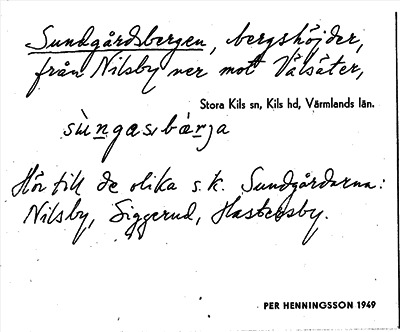 Sundgårdsbergen, bergshöjder,
från Nilsby ner mot Välsäter,
Stora Kils sn, Kils hd, Värmlands län.
sùngasbàrja
Hör till de olika s.k. Sundgårdarna:
Nilsby, Siggerud, Hastersby.
PER HENNINGSSON 1949